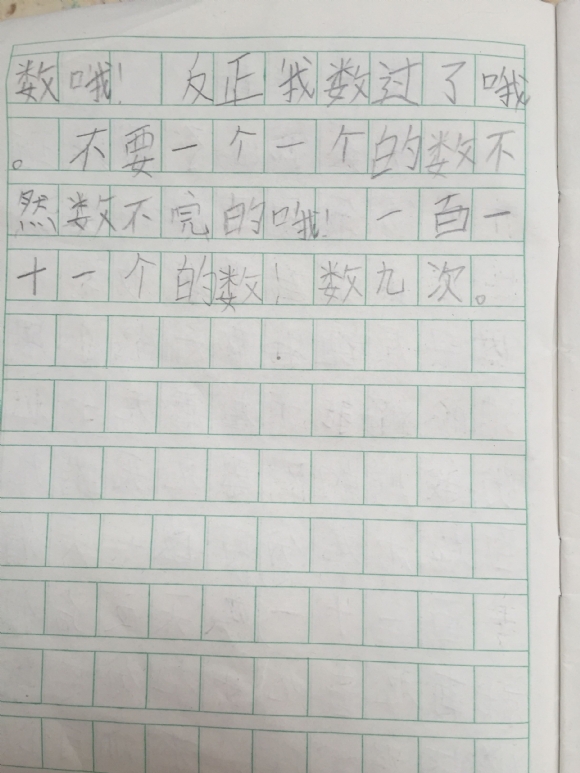 数哦！反正我数过了哦
。不要一个一个的数不
然数不完的哦！一百一
十一个的数！数九次。